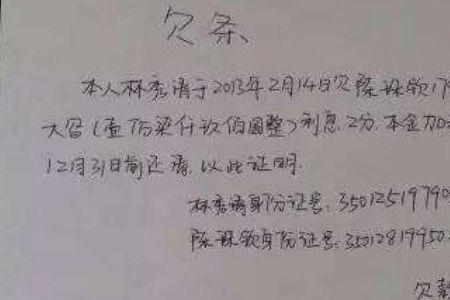 欠条
本人林秀清于2013年2月14日欠陈珠钦179
大写(壹万柒仟玖佰圆整)利息2分.本金加
12月31日前还清,以此证明.
林秀清身份证号:35012519790
陈珠钦身份证号:35012819950
欠款